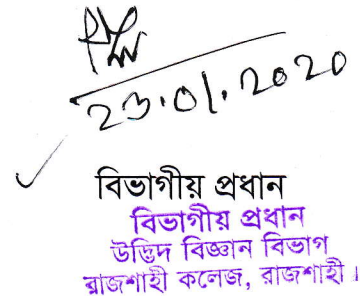 23.01.2020
বিভাগীয় প্রধান
বিভাগীয় প্রধান
উদ্ভিদ বিজ্ঞান বিভাগ
রাজশাহী কলেজ, রাজশাহী।